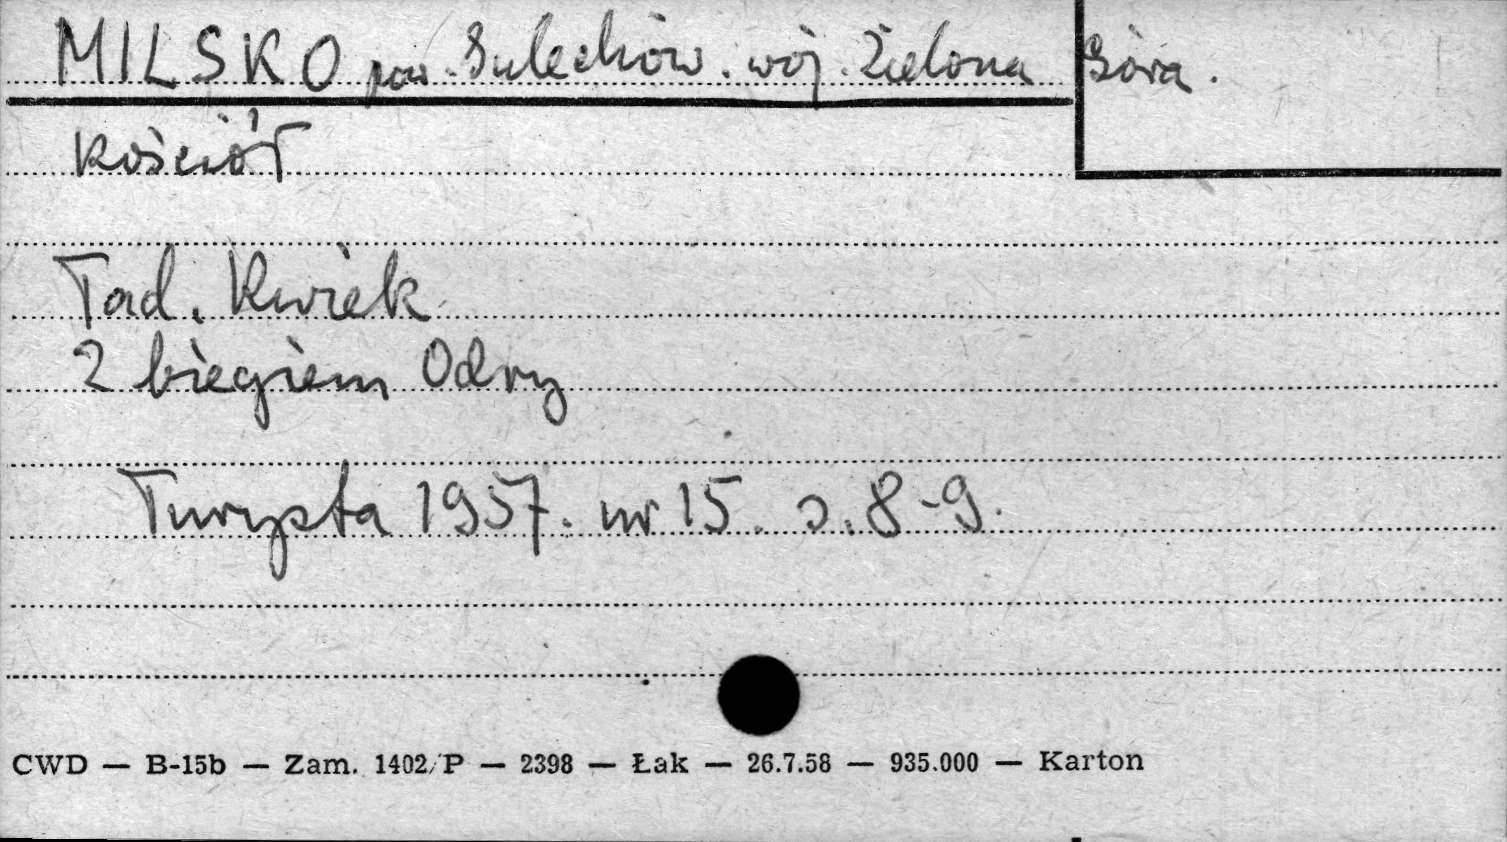 MILSKO pow. Sulechów. woj. Zielona Góra.
Kościół
Tad. Kwiek
Z biegiem Odry
Turysta 1957. nr 15. s. 8-9.
CWD — B-15b — Zam. 1402/P — 2398 — Łak — 26.7.58 — 935.000 — Karton